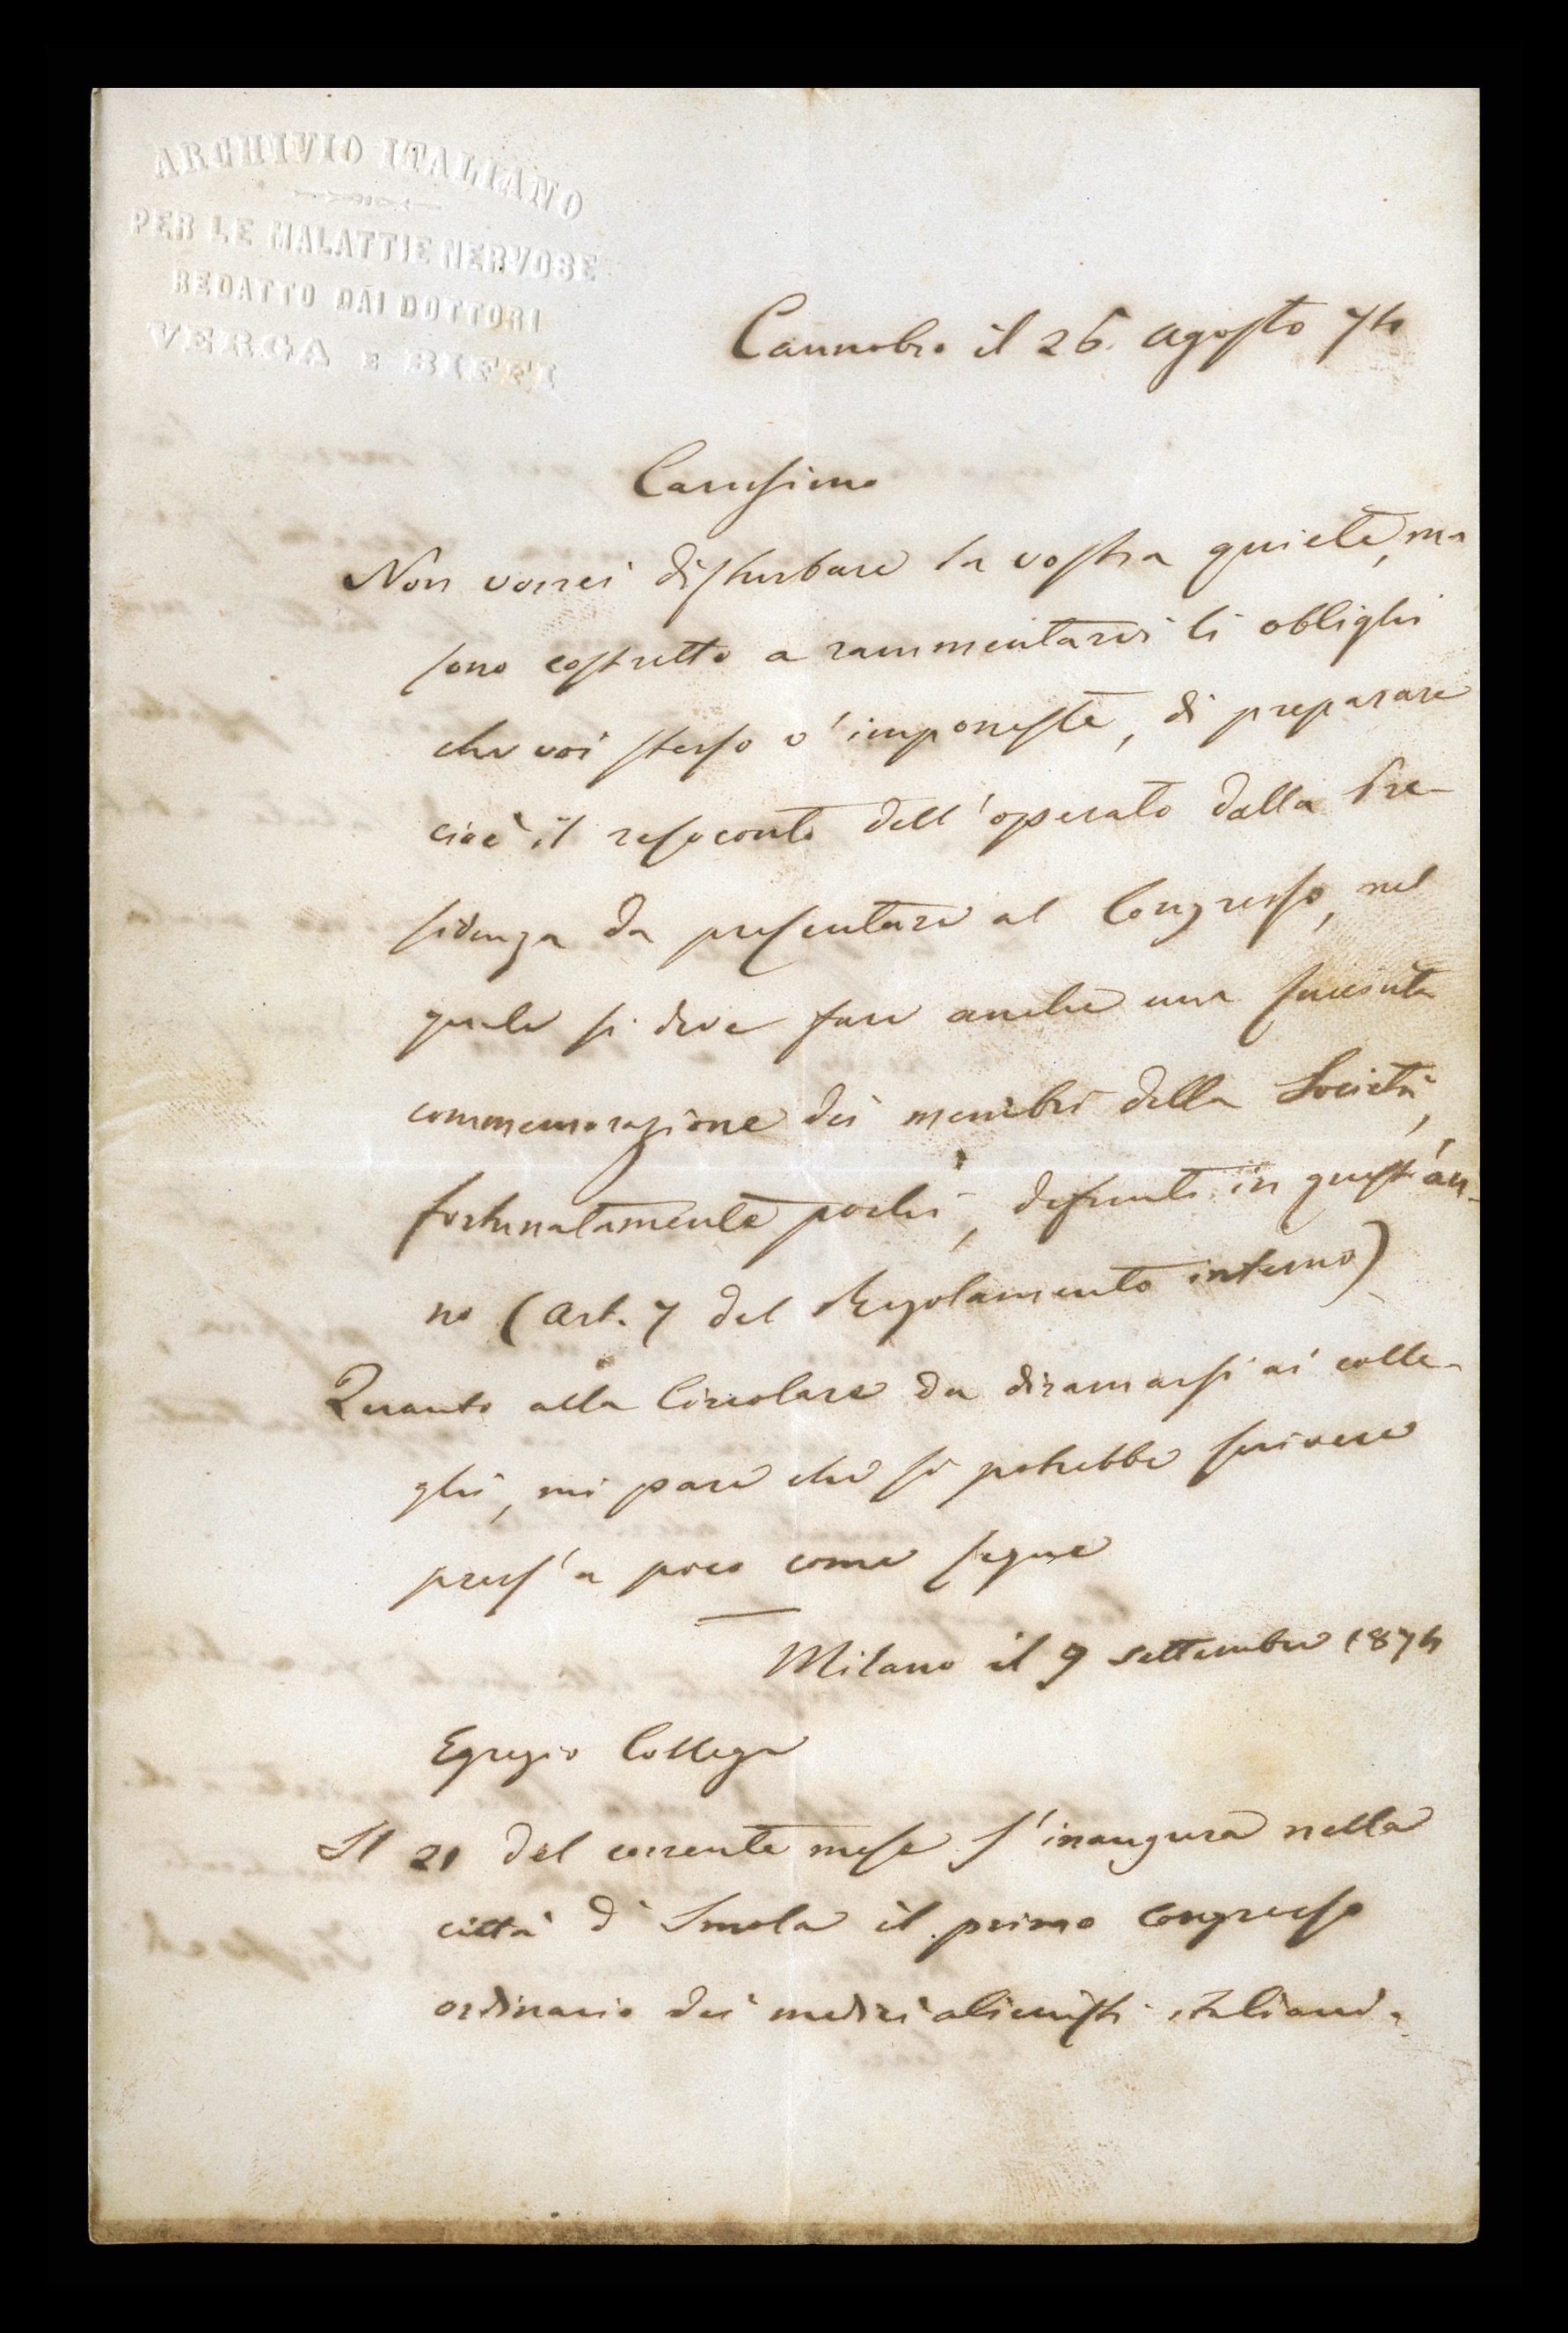 ARCHIVIO ITALIANO
PER LE MALATTIE NERVOSE
REDATTO DAI DOTTORI
VERGA E BIFFI
Cannobio il 26 agosto 74
Carissimo
Non vorrei disturbare la vostra quiete, ma
sono costretto a rammentarvi li obblighi
che voi stesso v'imponeste, di preparare
cioè il resoconto dell'operato dalla Pre-
sidenza da presentare al Congresso, nel
quale si deve fare anche una succinta
commemorazione dei membri della Società,
fortunatamente pochi, defunti in quest'an-
no (Art. 7 del Regolamento interno)
Quanto alla Circolare da diramarsi ai colle-
ghi, mi pare che si potrebbe scrivere
press'a poco come segue
Milano il 9 settembre 1874
Egregio Collega
Il 21 del corrente mese s'inaugura nella
città d'Imola il primo Congresso
ordinario dei medici alienisti italiani.